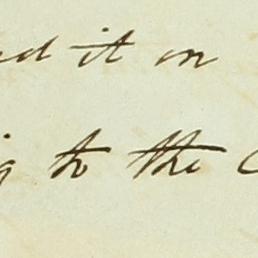 it on
to the